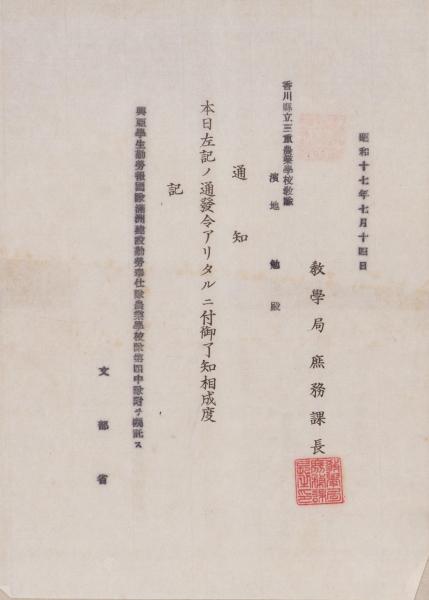 昭和十七年七月十四日
教學局庶務課長
香川縣立三重農業學校教諭
濱地 勉 殿
通知
本日左記ノ通發令アリタルニ付御了知相成度
記
興亞學生勤勞報國隊滿洲建設勤勞奉仕隊農業學校隊第四中隊附ヲ囑託ス
文部省